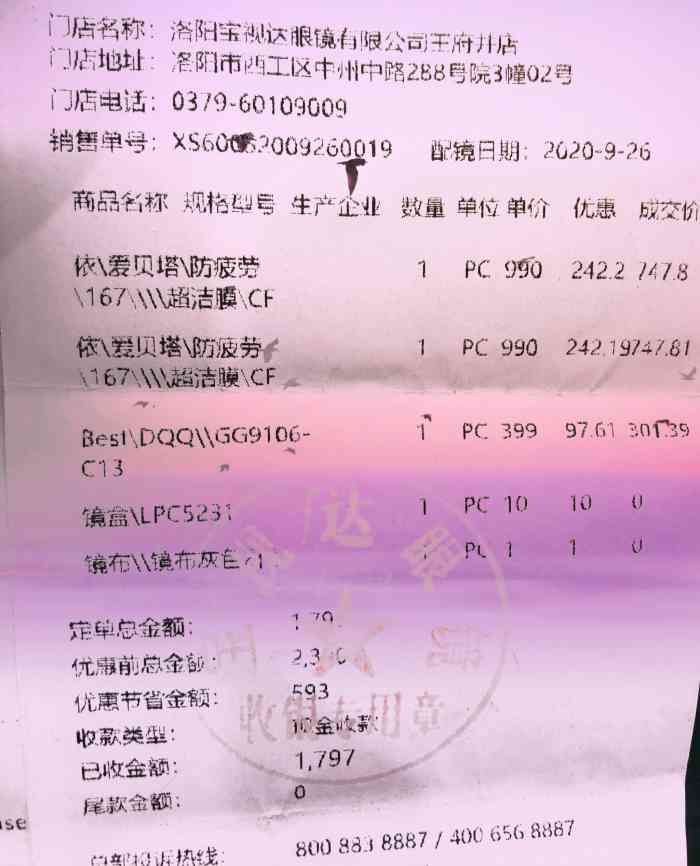 门店名称：洛阳宝视达眼镜有限公司王府井店
门店地址：洛阳市西工区中州中路288号院3幢02号
门店电话：0379-60109009
销售单号： 配镜日期：2020-9-26
商品名称 规格型号 生产企业 数量 单位 单价 优惠 成交价
依\爱贝塔\防疲劳 1 PC 990 242.2 747.8
\167\\\\超洁膜\CF
依\爱贝塔\防疲劳 1 PC 990 242.19 747.81
\167\\\\超洁膜\CF
Best\DQQ\\GG9106- 1 PC 399 97.61 301.39
C13
镜盒\LPC5231 1 PC 10 10 0
镜布\\镜布灰色 1 PC 1 1 0
定单总金额：
优惠前总金额：
优惠节省金额：593
收款类型：现金收款
已收金额：1,797
尾款金额：0
总部投诉热线：800 883 8887 / 400 656 8887